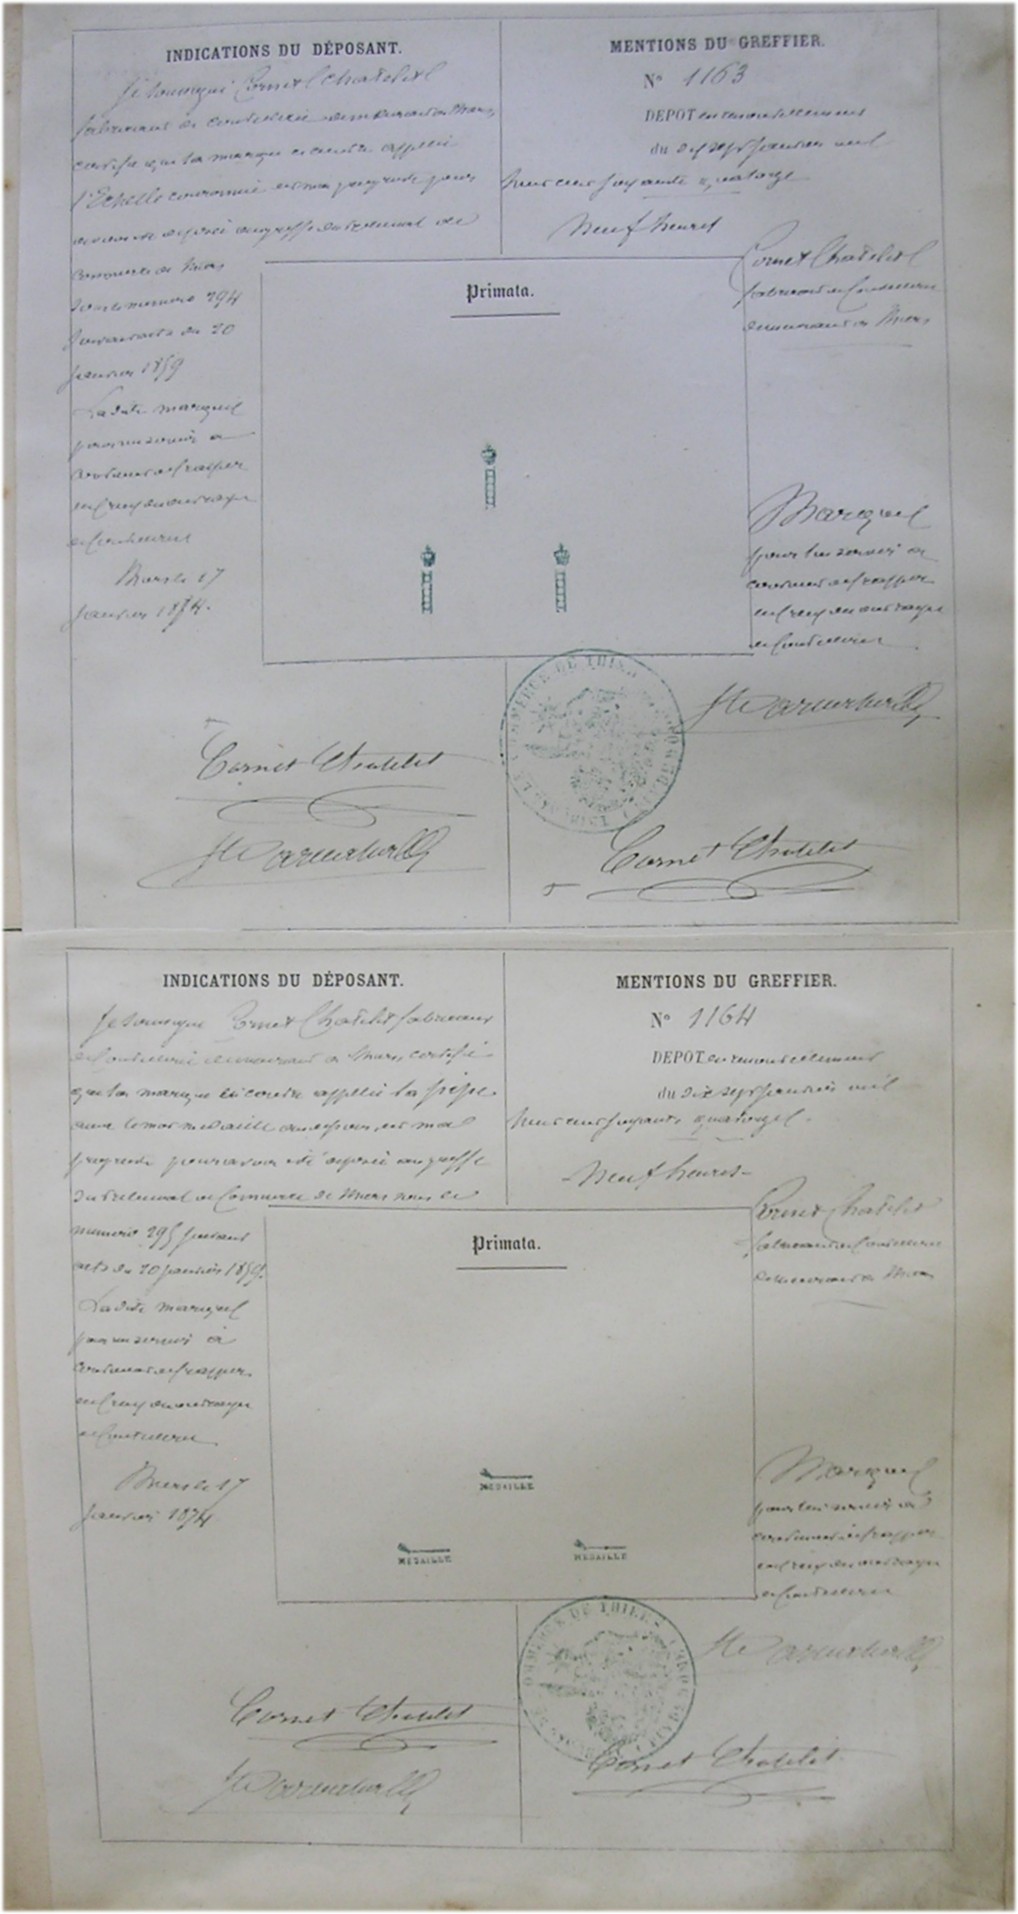 INDICATIONS DU DÉPOSANT.
Je soussigné Cornet Chatelet
fabricant de coutellerie demeurant à Thiers,
certifie que la marque ci contre appelée
l'Echelle couronnée est ma propriété pour
avoir été déposée au greffe du tribunal de
Commerce de Thiers
sous le numéro 294
suivant acte du 20
Janvier 1859
La dite marque
pour me servir à
continuer de frapper
en creux mes ouvrages
de Coutellerie
Thiers le 17
Janvier 1874.
Cornet Chatelet
MENTIONS DU GREFFIER.
N° 1163
DEPOT en renouvellement
du dix sept Janvier mil
huit cent soixante quatorze
Neuf heures
Cornet Chatelet
fabricant de Coutellerie
demeurant à Thiers
Primata.
Marque
pour lui servir à
continuer de frapper
en creux ses ouvrages
de Coutellerie
COMMERCE DE THIERS
Cornet Chatelet
INDICATIONS DU DÉPOSANT.
Je soussigné Cornet Chatelet fabricant
de Coutellerie demeurant à Thiers, certifie
que la marque ci contre appelée la pipe
avec le mot médaille au dessous, est ma
propriété pour avoir été déposée au greffe
du tribunal de Commerce de Thiers sous le
numéro 295 suivant
acte du 20 janvier 1859.
La dite marque
pour me servir à
continuer de frapper
en creux mes ouvrages
de Coutellerie
Thiers le 17
Janvier 1874
Cornet Chatelet
MENTIONS DU GREFFIER.
N° 1164
DEPOT en renouvellement
du dix sept Janvier mil
huit cent soixante quatorze.
Neuf heures
Cornet Chatelet
fabricant de Coutellerie
demeurant à Thiers
Primata.
MEDAILLE
MEDAILLE
MEDAILLE
Marque
pour lui servir à
continuer de frapper
en creux ses ouvrages
de Coutellerie
COMMERCE DE THIERS
Cornet Chatelet